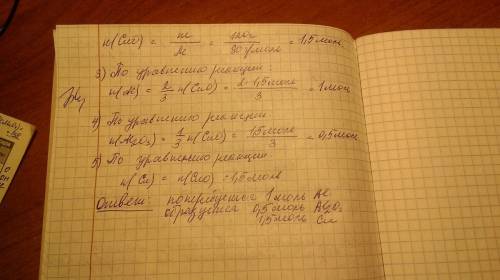 n(CuO) = m/M = 120г/80 г/моль = 1,5 моль.
3) По уравнению реакции:
n(Al) = 2/3 n(CuO) = 2·1,5моль/3 = 1 моль
4) По уравнению реакции:
n(Al₂O₃) = 1/3 n(CuO) = 1,5моль/3 = 0,5 моль
5) По уравнению реакции:
n(Cu) = n(CuO) = 1,5 моль
Ответ: потребуется 1 моль Al
образуется 0,5 моль Al₂O₃
1,5 моль Cu